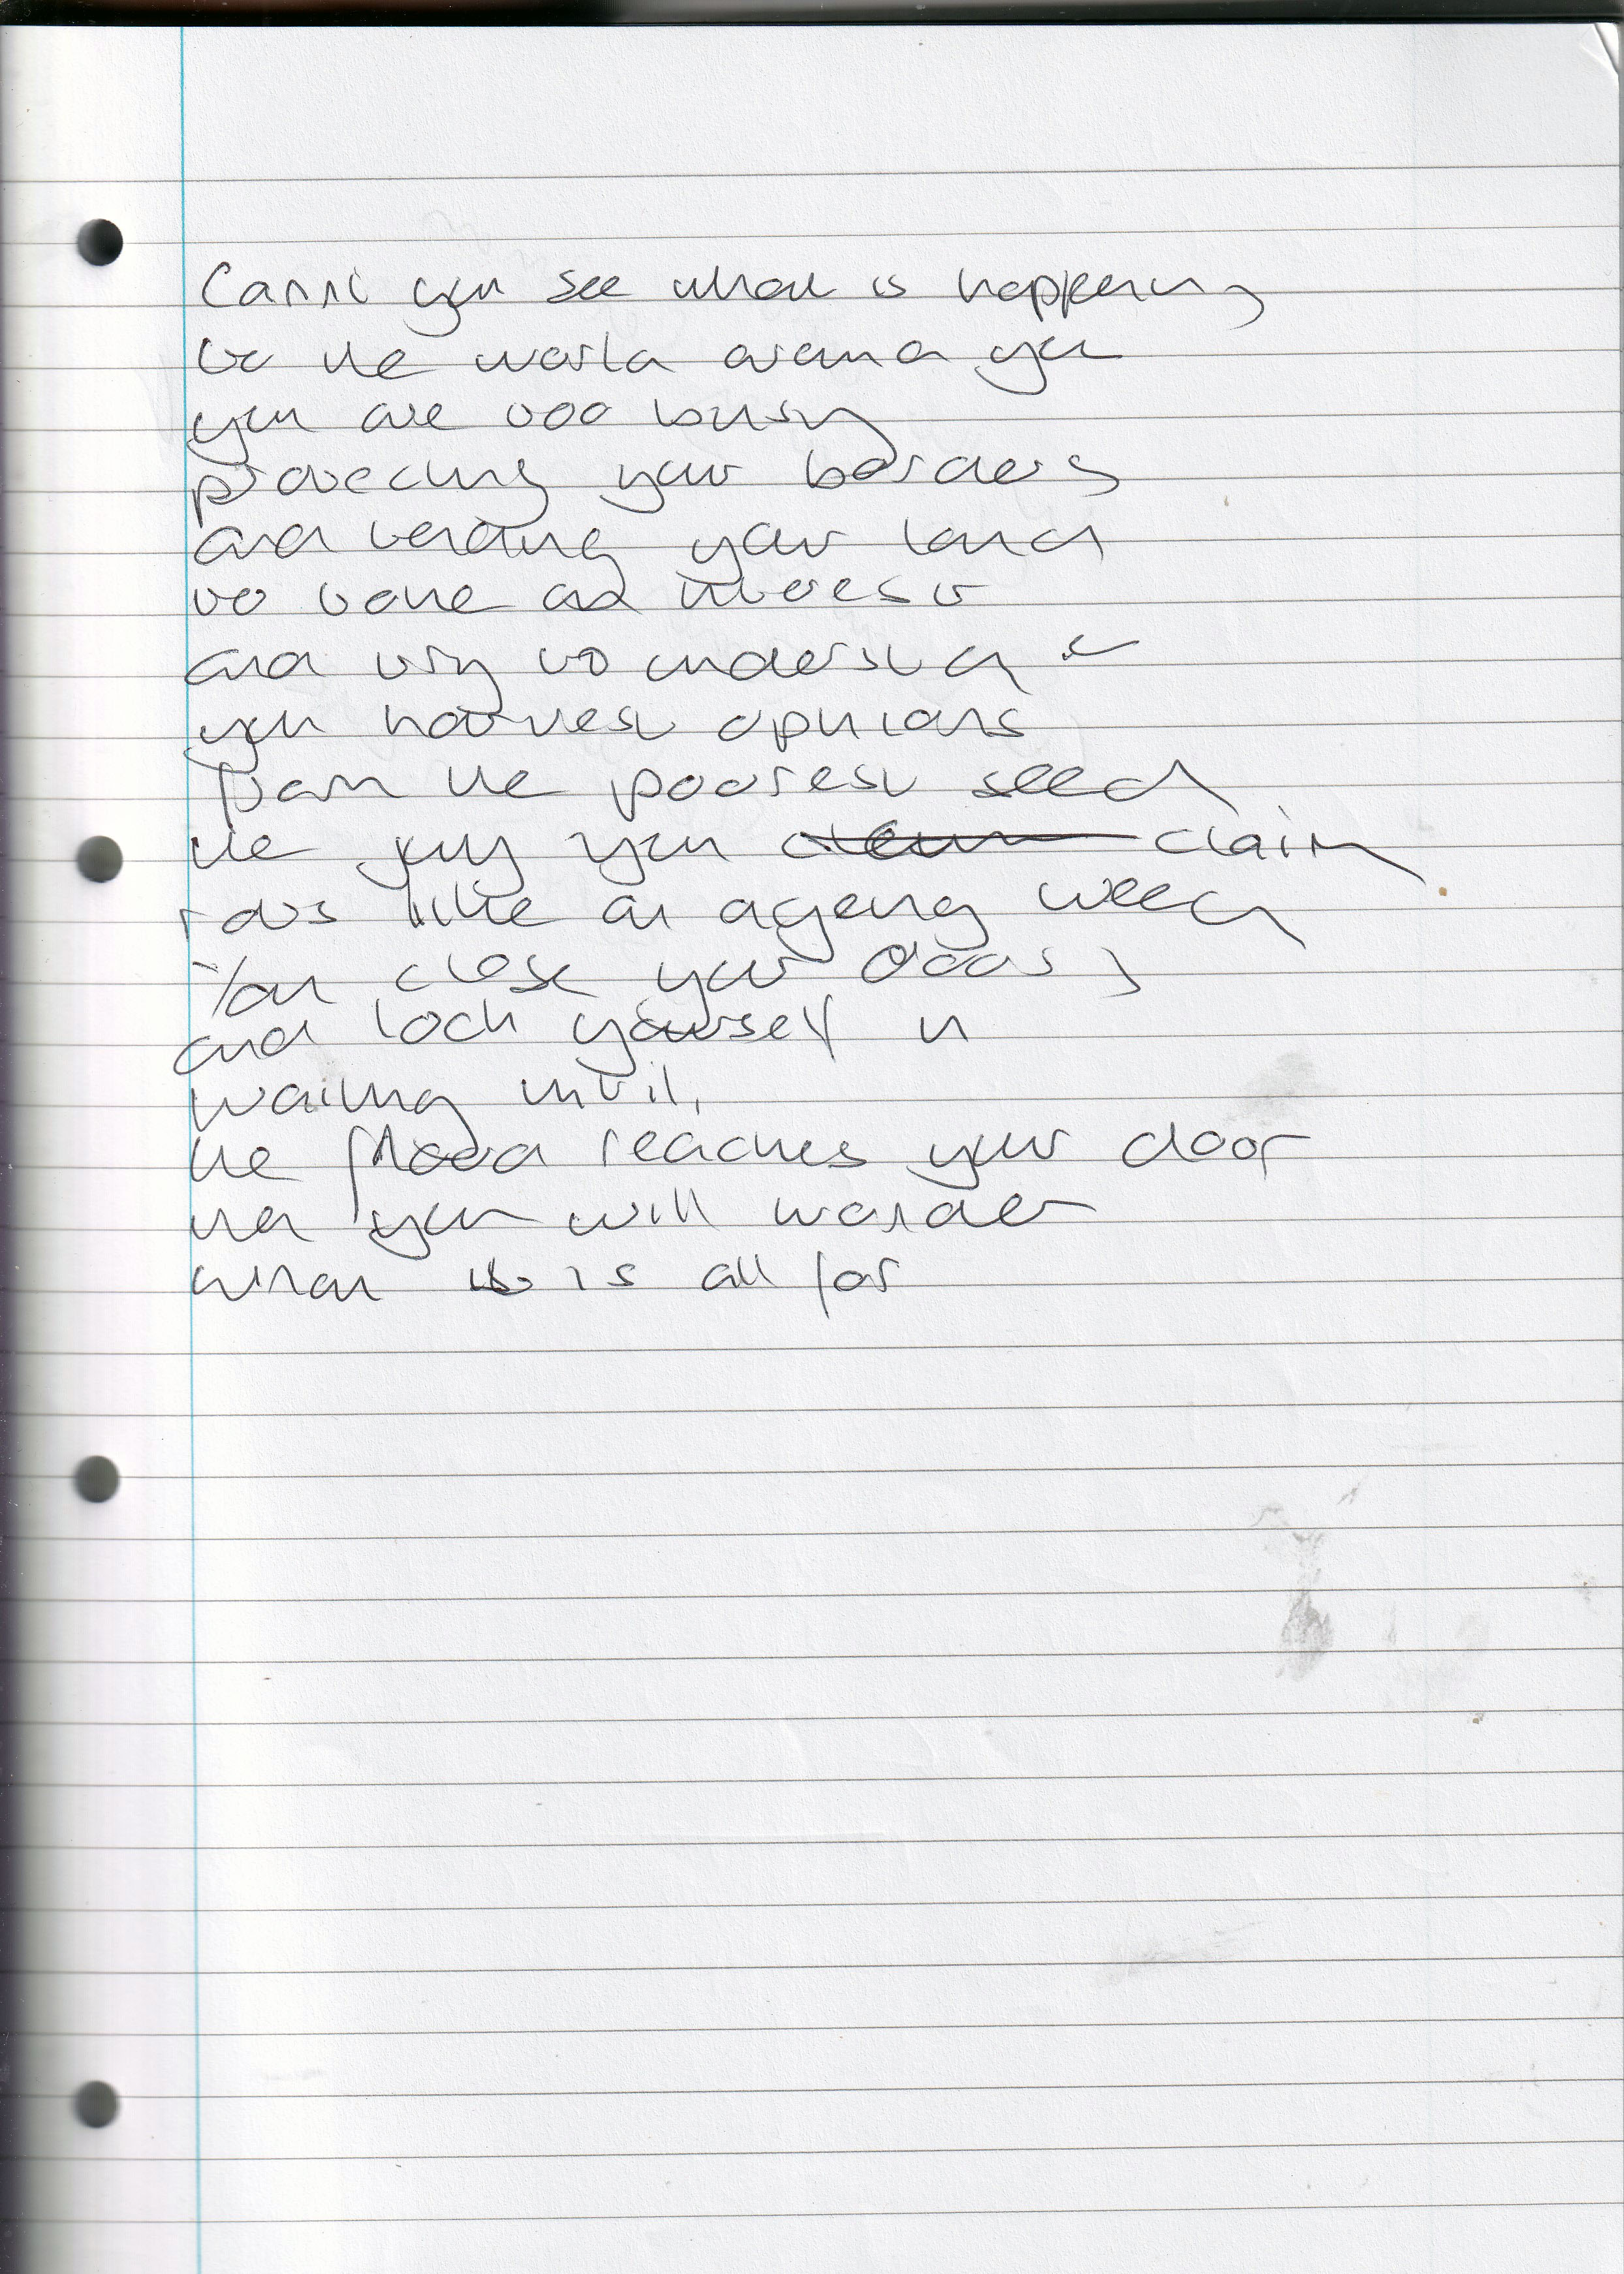 Can't you see what is happening
to the world around you
you are too busy
protecting your borders
and tending your land
to take an interest
and try to understand
you harvest opinions
from the poorest seed
the you claim
rots like an ageing weed
You close your doors
and lock yourself in
waiting until,
the flood reaches your door
then you will wonder
what it is all for